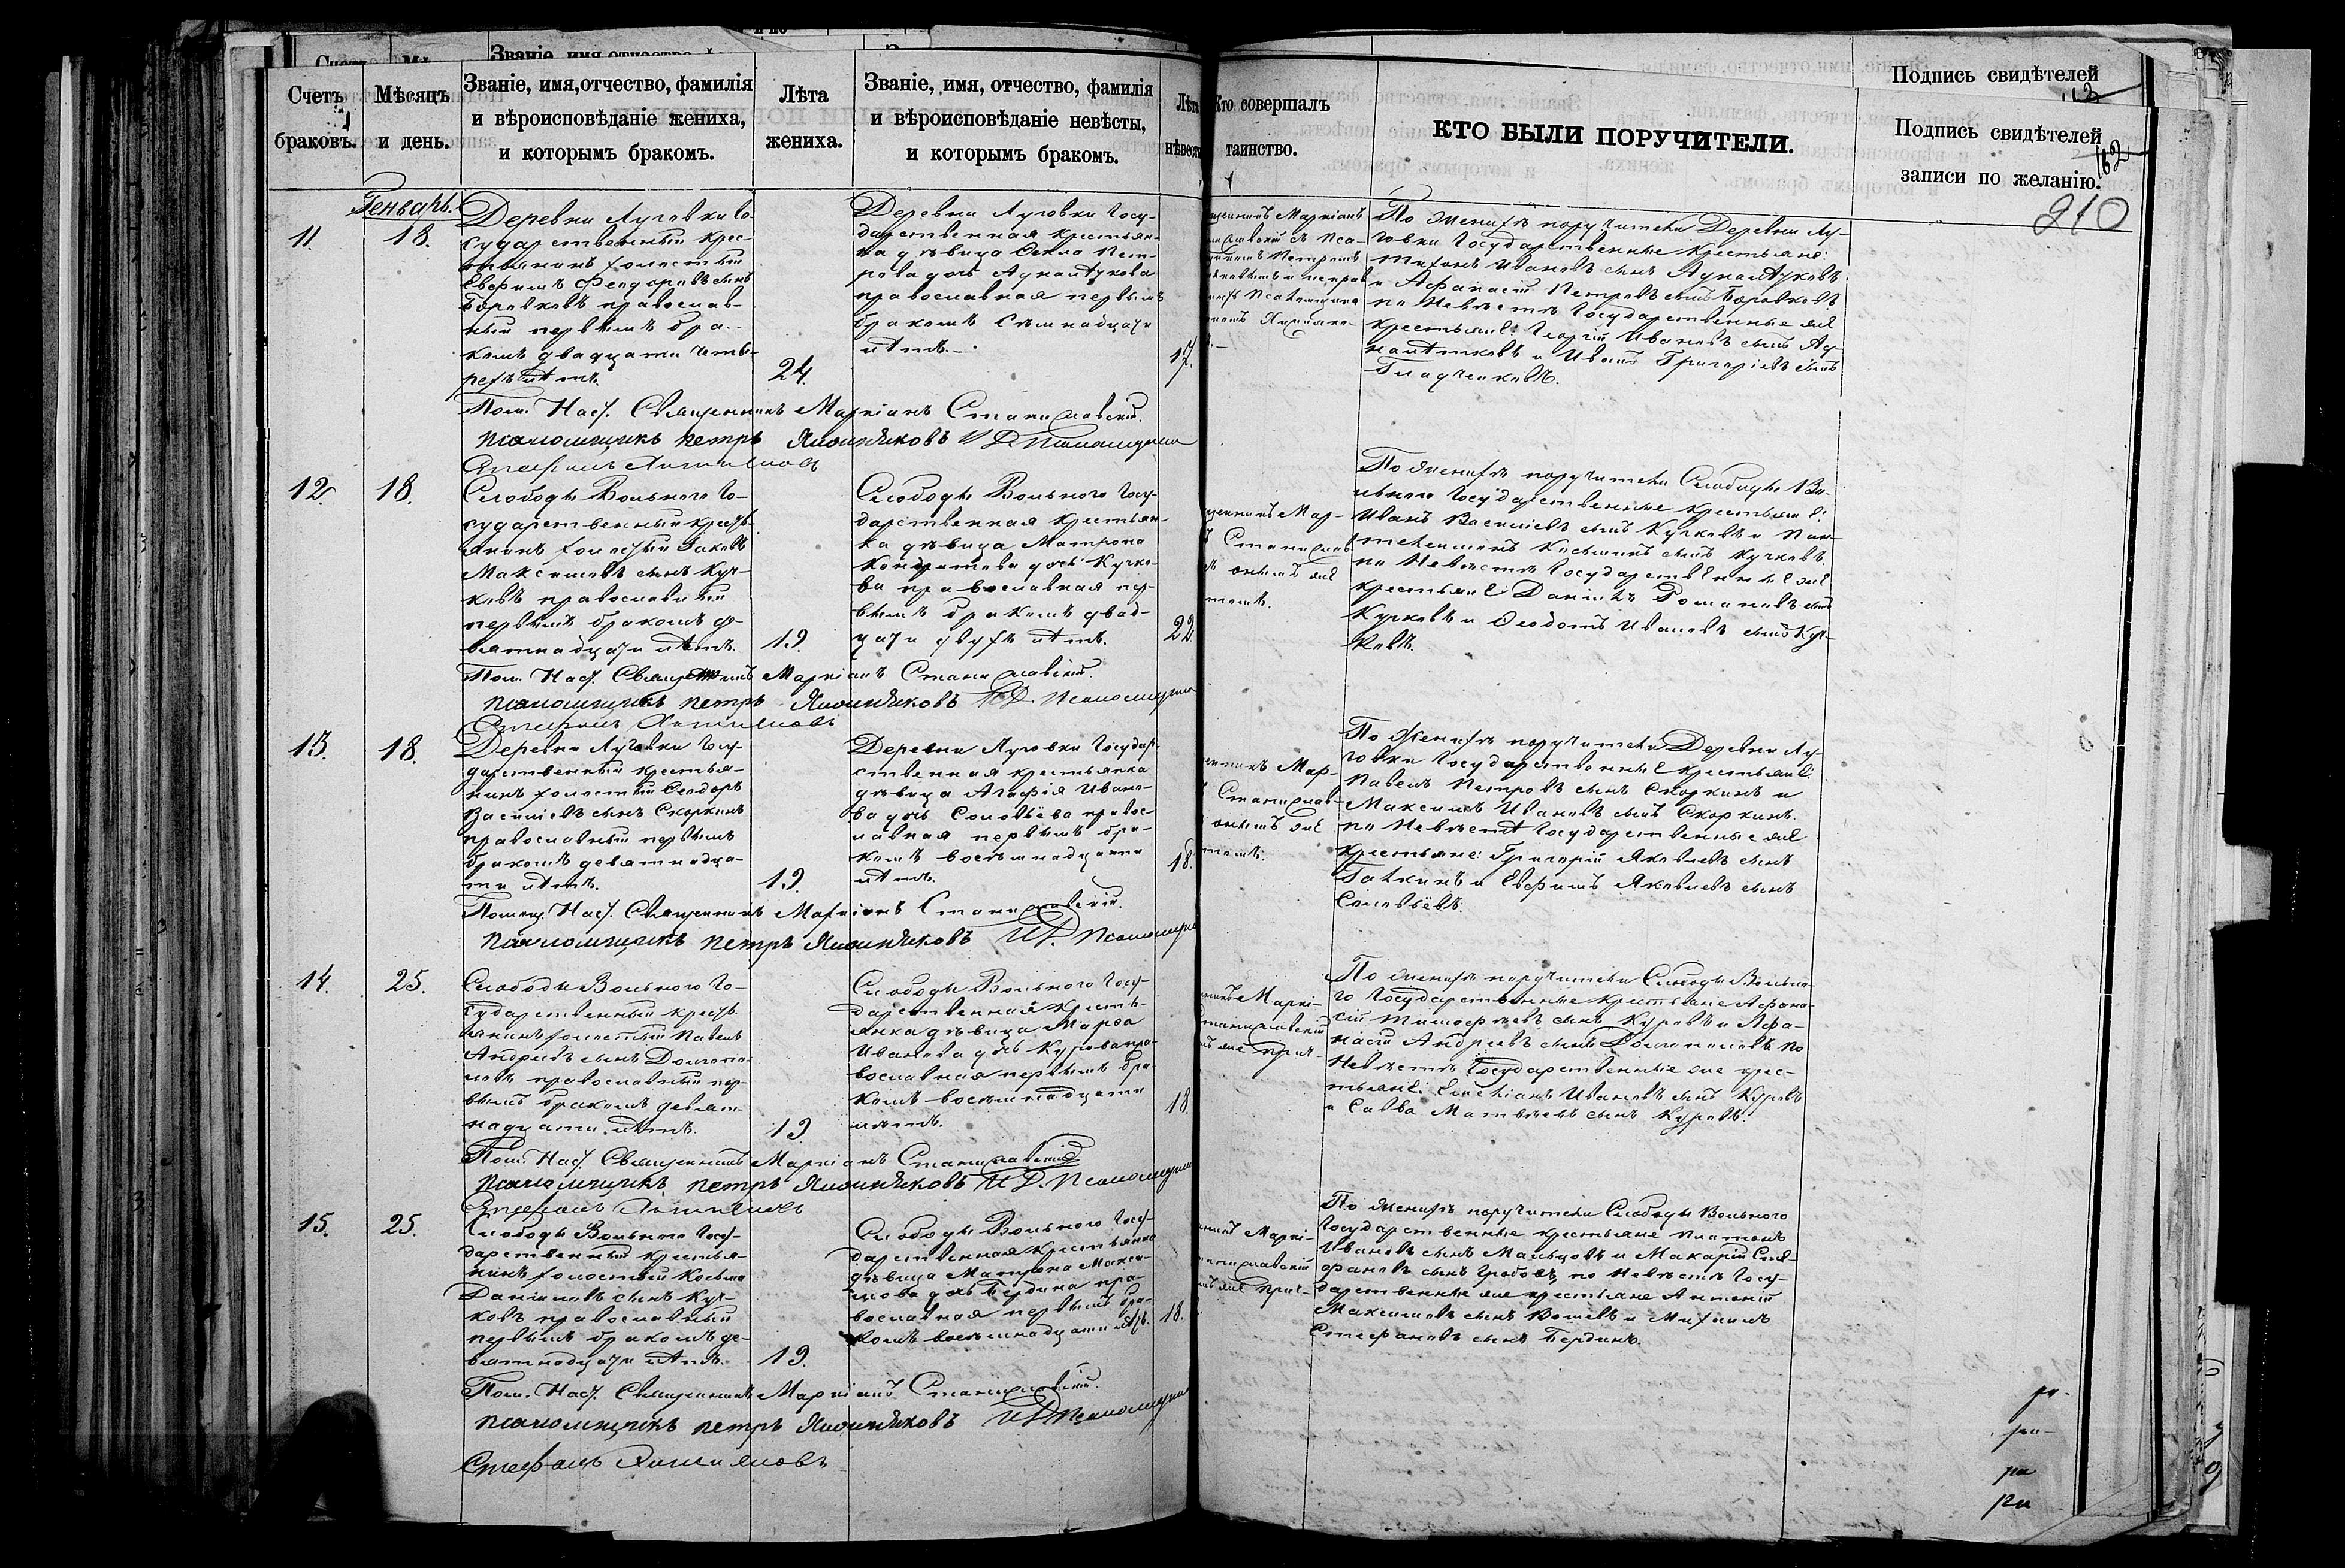 Счетъ
браковъ.
Мѣсяцъ
и день.
Званіе, имя, отчество, фамилія
и вѣроисповѣданіе жениха,
и которымъ бракомъ.
Лѣта
жениха.
Званіе, имя, отчество, фамилія
и вѣроисповѣданіе невѣсты,
и которымъ бракомъ.
Лѣта
невѣсты
Кто совершалъ
таинство.
КТО БЫЛИ ПОРУЧИТЕЛИ.
Подпись свидѣтелей
Подпись свидѣтелей
записи по желанію.
162
210
Генварь.
11.
18.
Деревни Луговки Го-
сударственный крес-
тьянинъ холостый
Евфимъ Феодоровъ сынъ
Боровковъ православ-
ный первымъ бра-
комъ двадцати четы-
рехъ лѣтъ.
24.
Деревни Луговки Госу-
дарственная крестьян-
ка дѣвица Пет-
рова дочь
православная первымъ
бракомъ семнадцати
лѣтъ.
17.
По женихѣ поручители Деревни Лу-
говки Государственные крестьяне:
Ивановъ сынъ
и Афанасій Петровъ сынъ Боровковъ
по невѣстѣ Государственные же
крестьяне: Георгій Ивановъ сынъ
и Иванъ Григорьевъ сынъ
Гладченковъ.
Пом. Наст. Священникъ Маркіанъ Станиславскій.
Псаломщикъ Петръ И. Д. Псаломщика
Стефанъ
12.
18.
Слободы Вольного Го-
сударственный кресть-
янинъ холостый Іаковъ
Максимовъ сынъ Куч-
ковъ православный
первымъ бракомъ де-
вятнадцати лѣтъ.
19.
Слободы Вольного Госу-
дарственная крестьян-
ка дѣвица Матрона
Кондратова дочь Кучко-
ва православная пер-
вымъ бракомъ двад-
цати двухъ лѣтъ.
22
По женихѣ поручители Слободы Во-
льного Государственные крестьяне:
Иванъ Васильевъ сынъ Кучковъ и Пан-
телеимонъ Косьминъ сынъ Кучковъ.
по невѣстѣ Государственные же
крестьяне Даніилъ Романовъ сынъ
Кучковъ и Ѳеодотъ Ивановъ сынъ Куч-
ковъ.
Пом. Наст. Священникъ Маркіанъ Станиславскій.
Псаломщикъ Петръ И. Д. Псаломщика
Стефанъ
13.
18.
Деревни Луговки Госу-
дарственный крестья-
нинъ холостый Ѳеодоръ
Васильевъ сынъ Скоркинъ
православный первымъ
бракомъ девятнадца-
ти лѣтъ.
19.
Деревни Луговки Государ-
ственная крестьянка
дѣвица Агафія Ивано-
ва дочь Соловьёва правос-
лавная первымъ бра-
комъ восемнадцати
лѣтъ.
18.
По женихѣ поручители Деревни Лу-
говки Государственные крестьяне:
Павелъ Петровъ сынъ Скоркинъ и
Максимъ Ивановъ сынъ Скоркинъ.
по невѣстѣ Государственные же
крестьяне: Григорій Яковлевъ сынъ
Галкинъ и Евфимъ Яковлевъ сынъ
Соловьёвъ.
Помощ. Наст. Священникъ Маркіанъ Станиславскій.
Псаломщикъ Петръ И. Д. Псаломщика
14.
25.
Слободы Вольного Го-
сударственный кресть-
янинъ холостый Павелъ
Андреевъ сынъ Долгопо-
ловъ православный пер-
вымъ бракомъ девят-
надцати лѣтъ.
19
Слободы Вольного Госу-
дарственная кресть-
янка дѣвица Марѳа
Иванова дочь Курова пра-
вославная первымъ бра-
комъ восемнадцати
лѣтъ.
18
По женихѣ поручители Слободы Вольно-
го Государственные крестьяне Афана-
сій Тимофеевъ сынъ Куровъ и Афа-
насій Андреевъ сынъ Долгополовъ по
невѣстѣ Государственные же крес-
тьяне: Ивановъ сынъ Куровъ
и Савва Матвѣевъ сынъ Куровъ.
Пом. Наст. Священникъ Маркіанъ Станиславскій
Псаломщикъ Петръ И. Д. Псаломщика
Стефанъ
15.
25.
Слободы Вольного Госу-
дарственный крестья-
нинъ холостый Косьма
Даніиловъ сынъ Куч-
ковъ православный
первымъ бракомъ де-
вятнадцати лѣтъ.
19.
Слободы Вольного Госу-
дарственная крестьянка
дѣвица Матрона Макси-
мова дочь Бердина пра-
вославная первымъ бра-
комъ восемнадцати лѣтъ.
18.
По женихѣ поручители Слободы Вольного
Государственные крестьяне Платонъ
Ивановъ сынъ Мальцовъ и Макарій Сте-
фановъ сынъ Грабовъ, по невѣстѣ Госу-
дарственные же крестьяне Антоній
Максимовъ сынъ и Михаилъ
Стефановъ сынъ Бердинъ.
Пом. Наст. Священникъ Маркіанъ Станиславскій.
Псаломщикъ Петръ И. Д. Псаломщика
Стефанъ